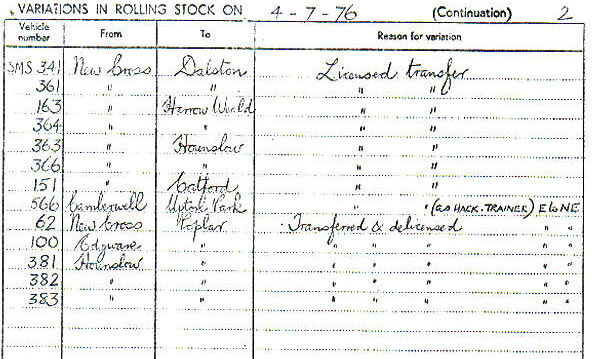 VARIATIONS IN ROLLING STOCK ON 4-7-76 (Continuation) 2
Vehicle number From To Reason for variation
SMS 341 New Cross Dalston Licensed transfer
361 " " " "
163 " Harrow Weald " "
364 " " " "
363 " Hounslow " "
366 " " " "
151 " Catford " "
566 Camberwell Upton Park " " (as HACK-TRAINER) E to NE
62 New Cross Poplar Transferred & delicensed " "
100 Edgware " " " " " "
381 Hounslow " " " " " "
382 " " " " " " "
383 " " " " " " "